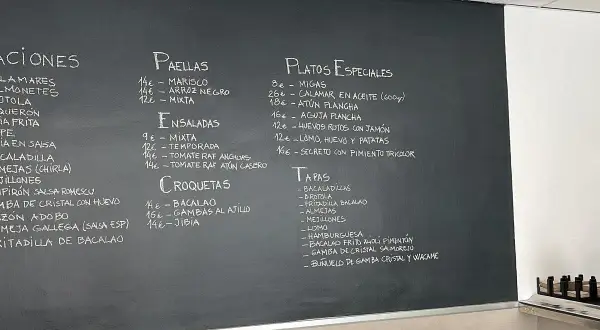 ACIONES
LAMARES
LMONETES
OTOLA
QUERÓN
IA FRITA
PE
IA EN SALSA
CALADILLA
MEJAS (CHIRLA)
JILLONES
PIRÓN SALSA ROMESCU
MBA DE CRISTAL CON HUEVO
ZÓN ADOBO
MEJA GALLEGA (SALSA ESP)
RITADILLA DE BACALAO
PAELLAS
14€ - MARISCO
14€ - ARROZ NEGRO
12€ - MIXTA
ENSALADAS
9€ - MIXTA
12€ - TEMPORADA
14€ - TOMATE RAF
14€ - TOMATE RAF ATÚN CASERO
CROQUETAS
14€ - BACALAO
15€ - GAMBAS AL AJILLO
14€ - JIBIA
PLATOS ESPECIALES
8€ - MIGAS
26€ - CALAMAR EN ACEITE (600gr)
18€ - ATÚN PLANCHA
16€ - AGUJA PLANCHA
12€ - HUEVOS ROTOS CON JAMÓN
12€ - LOMO, HUEVO Y PATATAS
14€ - SECRETO CON PIMIENTO TRICOLOR
TAPAS
- BACALADILLAS
- BROTOLA
- FRITADILLA BACALAO
- ALMEJAS
- MEJILLONES
- LOMO
- HAMBURGUESA
- BACALAO FRITO ALIOLI PIMENTÓN
- GAMBA DE CRISTAL SALMOREJO
- BUÑUELO DE GAMBA CRISTAL Y WACAME